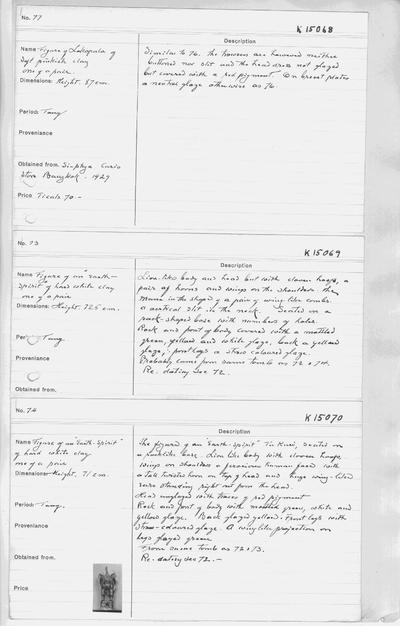 No. 77
K 15068
Description
Name Figure of Lokapala of
soft pinkish clay
one of a pair.
Dimensions: Height. 87 cm.
Period: Tang
Proveniance
Obtained from. Sin-phya Curio
Store Bangkok - 1929
Price Ticals 70.-
Similar to 76. The trousers are however neither
buttoned nor slit and the head dress not glazed
but covered with a red pigment. On breast plates
a neutral glaze otherwise as 76.
No. 73
K 15069
Description
Name Figure of an "earth-
spirit" of hard white clay
one of a pair
Dimensions: Height. 72.5 cm.
Period: Tang.
Proveniance
Obtained from.
Lion-like body and head but with cloven hoofs, a
pair of horns and wings on the shoulders. The
mane in the shape of a pair of wing like combs.
a vertical slit in the neck. Seated on a
rock-shaped base with numbers of holes.
Rock and front of body covered with a mottled
green, yellow and white glaze, back a yellow
glaze, front legs a straw coloured glaze.
Probably came from same tomb as 72 & 74.
Re. dating see 72.
No. 74
K 15070
Description
Name Figure of an "Earth-Spirit"
of hard white clay
one of a pair
Dimensions: Height. 71 cm.
Period: Tang.
Proveniance
Obtained from.
Price
The figure of an "earth-spirit" seated on
a rocklike base Lion like body with cloven hoofs
wings on shoulders a ferocious human face with
a tall twisted horn on top of head and huge wing-like
ears standing right out from the head.
Head unglazed with traces of red pigment
Rock and front of body with mottled green, white and
yellow glaze. Back glazed yellow. Front legs with
straw-coloured glaze. A wing like projection on
legs glazed green
From same tomb as 72 & 73.
Re. dating see 72.-